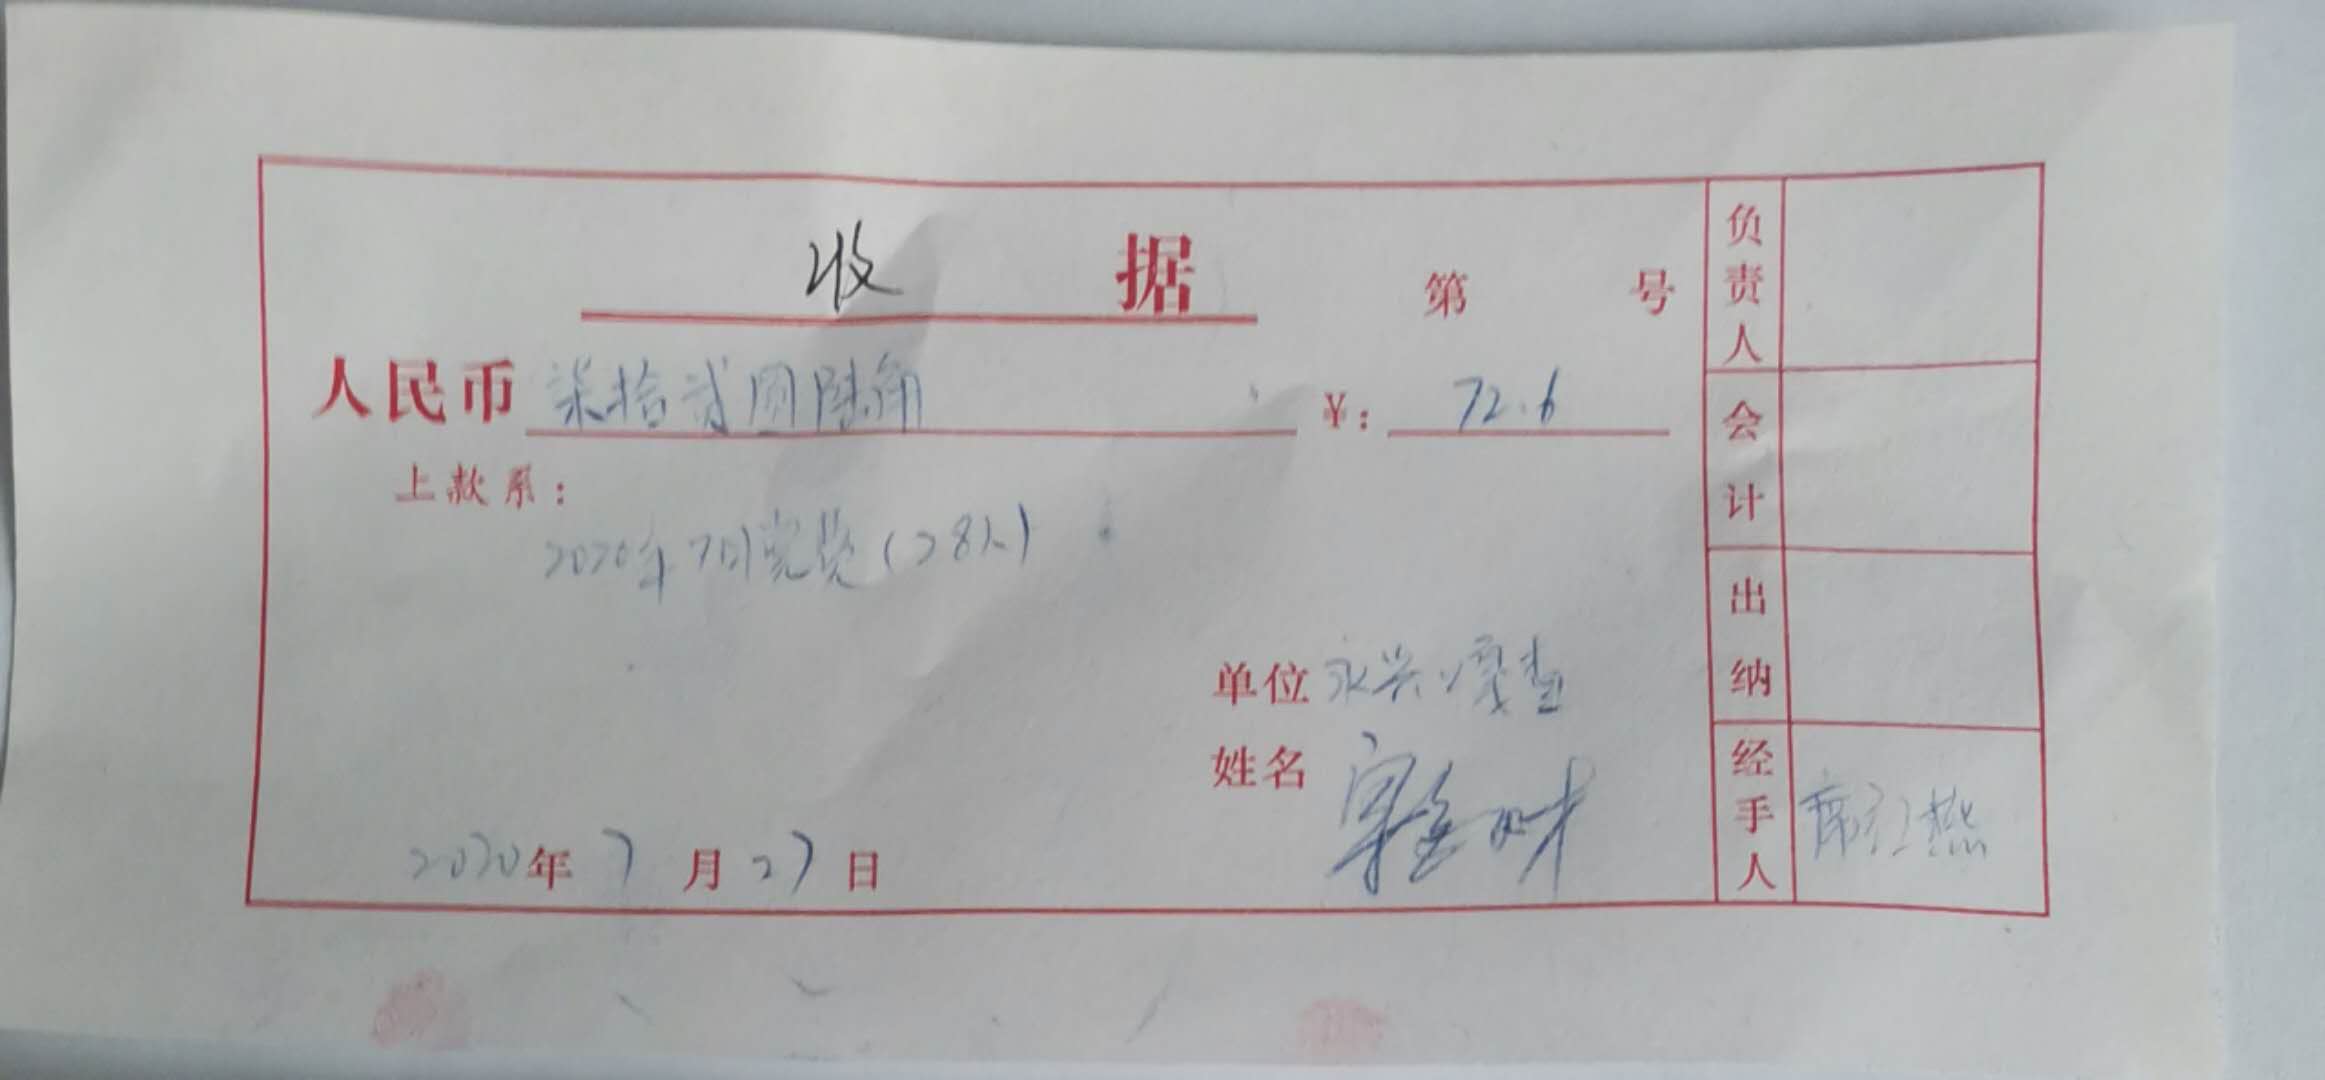 收 据 第 号
人民币 柒拾贰圆陆角 ¥: 72.6
上款系:
2020年7月党费(28人)
单位 永兴
姓名
2020年 7 月 27 日
负责人
会计
出纳
经手人 席红燕